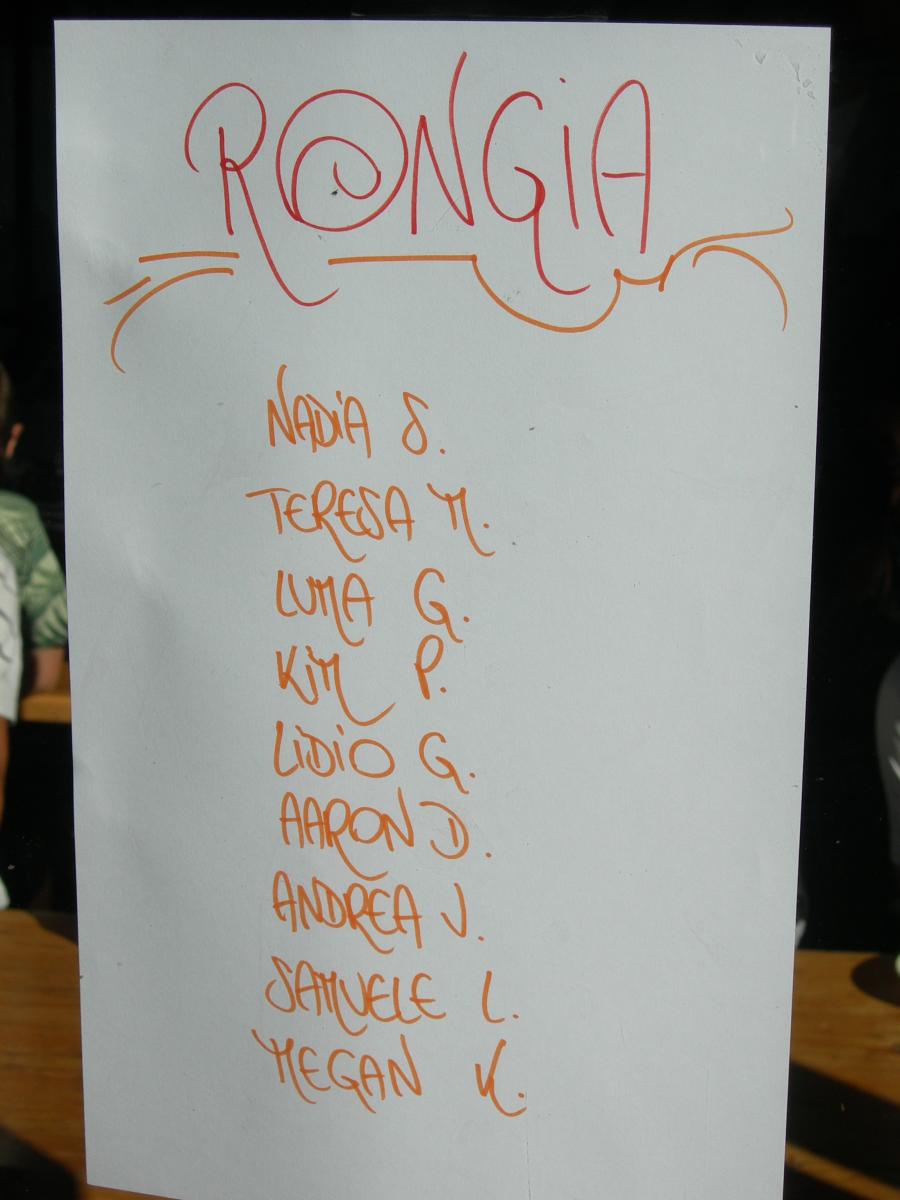 RONGiA
NADiA S.
TERESA M.
LUMA G.
KiM P.
LiDiO G.
AARON D.
ANDREA J.
SAMUELE L.
MEGAN K.